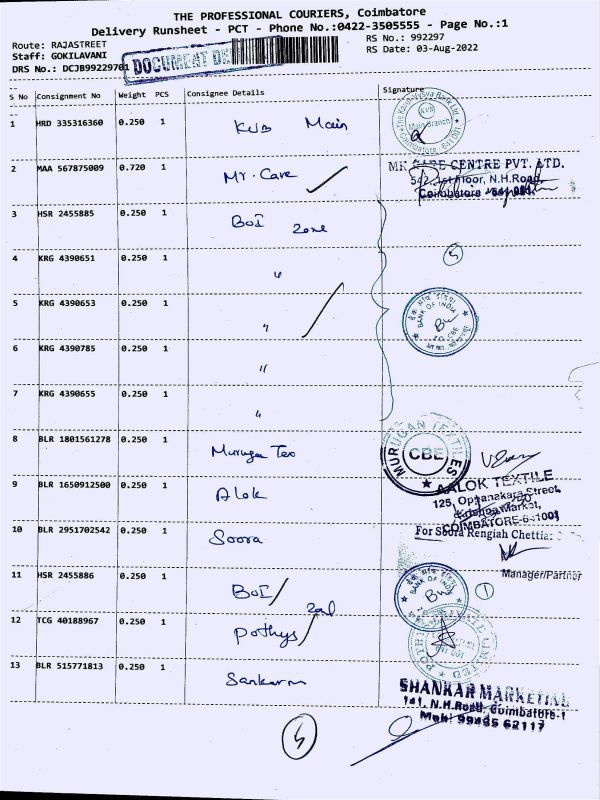 THE PROFESSIONAL COURIERS, Coimbatore
Delivery Runsheet - PCT - Phone No.:0422-3505555 - Page No.:1
Route: RAJASTREET
RS No.: 992297
Staff: GOKILAVANI
RS Date: 03-Aug-2022
DRS No.: DCJB99229701
DOCUMENT DE
S No Consignment No Weight PCS Consignee Details Signature
1 HRD 335316360 0.250 1 KVB Main
KVB
Main Branch
2 MAA 567875009 0.720 1 Mr. Care
CENTRE PVT. LTD.
1st Floor, N.H.Road,
Coimbatore
3 HSR 2455885 0.250 1 BOI Zone
4 KRG 4390651 0.250 1 "
5
5 KRG 4390653 0.250 1 "
BANK OF INDIA
6 KRG 4390785 0.250 1 "
7 KRG 4390655 0.250 1 "
8 BLR 1801561278 0.250 1 Murugan Tex
MURUGAN TEXTILES
CBE
9 BLR 1650912500 0.250 1 Alok
AALOK TEXTILE
125, Oppanakara Street,
Market,
COIMBATORE-6
10 BLR 2951702542 0.250 1 Soora
For Soora Rengiah Chettiar
Manager/Partner
11 HSR 2455886 0.250 1 BOI
BANK OF INDIA
1
12 TCG 40188967 0.250 1 Pothys
13 BLR 515771813 0.250 1 Sankarn
SHANKAR
141, N.H.Road, Coimbatore-1
62117